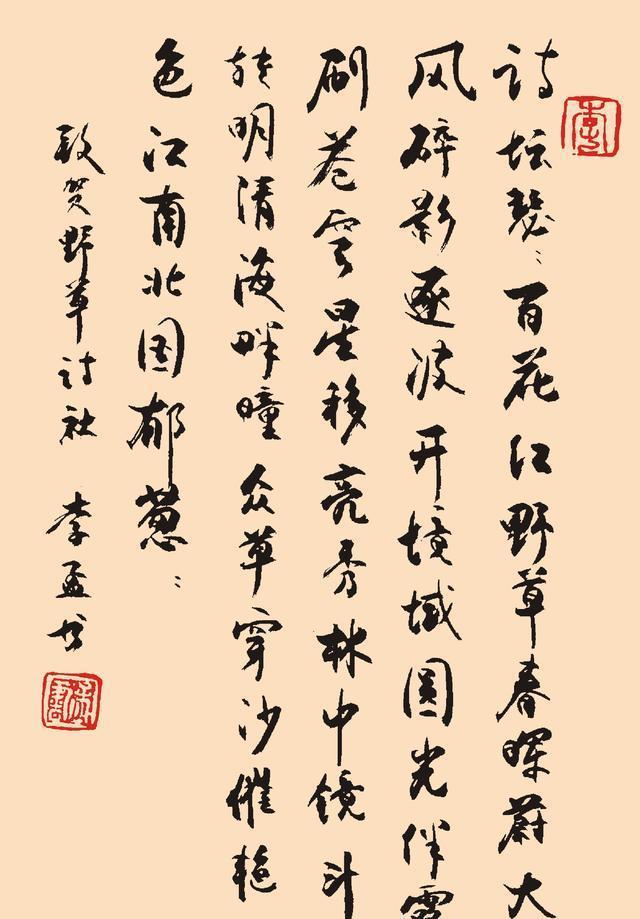 诗坛瑟々百花红野草春晖蔚大
风碎影逐波开境域圆光伴雪
刷苍穹星移亮秀林中镜斗
转明清海畔曈众草穿沙催艳
色江南北国郁葱々
敬贺野草诗社 李孟书